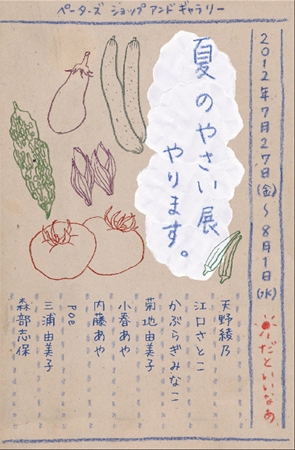 ペーターズ ショップ アンド ギャラリー
2012年7月27日(金)〜8月1日(水)
だといいなぁ
夏のやさい展
やります。
天野綾乃
江口さとこ
かぶらぎみなこ
菊地由美子
小春あや
内藤あや
POE
三浦由美子
森部志保